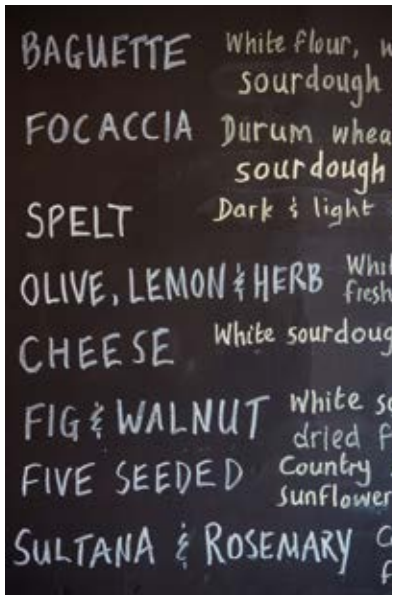 BAGUETTE White flour,
sourdough
FOCACCIA Durum
sourdough
SPELT Dark & light
OLIVE, LEMON & HERB
fresh
CHEESE White
FIG & WALNUT White
dried
FIVE SEEDED Country
Sunflower
SULTANA & ROSEMARY